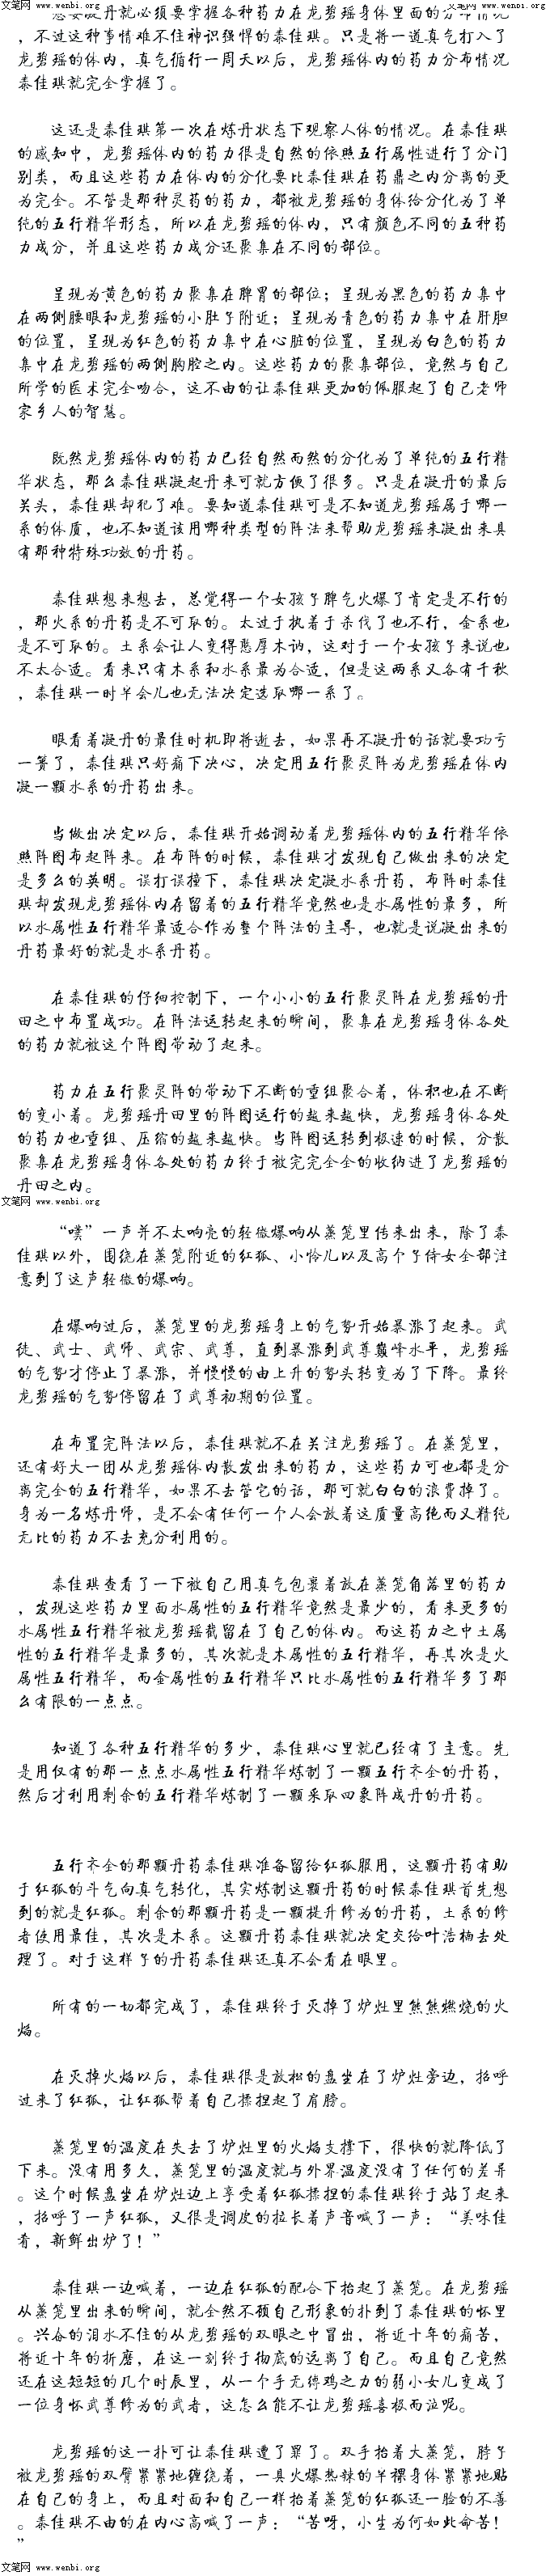 文笔网 www.wenbi.org 文笔网 www.wenbi.org
想要凝丹就必须要掌握各种药力在龙碧瑶身体里面的分布情况
，不过这种事情难不住神识强悍的泰佳琪。只是将一道真气打入了
龙碧瑶的体内，真气循行一周天以后，龙碧瑶体内的药力分布情况
泰佳琪就完全掌握了。
这还是泰佳琪第一次在炼丹状态下观察人体的情况。在泰佳琪
的感知中，龙碧瑶体内的药力很是自然的依照五行属性进行了分门
别类，而且这些药力在体内的分化要比泰佳琪在药鼎之内分离的更
为完全。不管是那种灵药的药力，都被龙碧瑶的身体给分化为了单
纯的五行精华形态，所以在龙碧瑶的体内，只有颜色不同的五种药
力成分，并且这些药力成分还聚集在不同的部位。
呈现为黄色的药力聚集在脾胃的部位；呈现为黑色的药力集中
在两侧腰眼和龙碧瑶的小肚子附近；呈现为青色的药力集中在肝胆
的位置，呈现为红色的药力集中在心脏的位置，呈现为白色的药力
集中在龙碧瑶的两侧胸腔之内。这些药力的聚集部位，竟然与自己
所学的医术完全吻合，这不由的让泰佳琪更加的佩服起了自己老师
家乡人的智慧。
既然龙碧瑶体内的药力已经自然而然的分化为了单纯的五行精
华状态，那么泰佳琪凝起丹来可就方便了很多。只是在凝丹的最后
关头，泰佳琪却犯了难。要知道泰佳琪可是不知道龙碧瑶属于哪一
系的体质，也不知道该用哪种类型的阵法来帮助龙碧瑶来凝出来具
有那种特殊功效的丹药。
泰佳琪想来想去，总觉得一个女孩子脾气火爆了肯定是不行的
，那火系的丹药是不可取的。太过于执着于杀伐了也不行，金系也
是不可取的。土系会让人变得憨厚木讷，这对于一个女孩子来说也
不太合适。看来只有木系和水系最为合适，但是这两系又各有千秋
，泰佳琪一时半会儿也无法决定选取哪一系了。
眼看着凝丹的最佳时机即将逝去，如果再不凝丹的话就要功亏
一篑了，泰佳琪只好痛下决心，决定用五行聚灵阵为龙碧瑶在体内
凝一颗水系的丹药出来。
当做出决定以后，泰佳琪开始调动着龙碧瑶体内的五行精华依
照阵图布起阵来。在布阵的时候，泰佳琪才发现自己做出来的决定
是多么的英明。误打误撞下，泰佳琪决定凝水系丹药，布阵时泰佳
琪却发现龙碧瑶体内存留着的五行精华竟然也是水属性的最多，所
以水属性五行精华最适合作为整个阵法的主导，也就是说凝出来的
丹药最好的就是水系丹药。
在泰佳琪的仔细控制下，一个小小的五行聚灵阵在龙碧瑶的丹
田之中布置成功。在阵法运转起来的瞬间，聚集在龙碧瑶身体各处
的药力就被这个阵图带动了起来。
药力在五行聚灵阵的带动下不断的重组聚合着，体积也在不断
的变小着。龙碧瑶丹田里的阵图运行的越来越快，龙碧瑶身体各处
的药力也重组、压缩的越来越快。当阵图运转到极速的时候，分散
聚集在龙碧瑶身体各处的药力终于被完完全全的收纳进了龙碧瑶的
丹田之内。
文笔网 www.wenbi.org
“噗”一声并不太响亮的轻微爆响从蒸笼里传来出来，除了泰
佳琪以外，围绕在蒸笼附近的红狐、小怜儿以及高个子侍女全部注
意到了这声轻微的爆响。
在爆响过后，蒸笼里的龙碧瑶身上的气势开始暴涨了起来。武
徒、武士、武师、武宗、武尊，直到暴涨到武尊巅峰水平，龙碧瑶
的气势才停止了暴涨，并慢慢的由上升的势头转变为了下降。最终
龙碧瑶的气势停留在了武尊初期的位置。
在布置完阵法以后，泰佳琪就不在关注龙碧瑶了。在蒸笼里，
还有好大一团从龙碧瑶体内散发出来的药力，这些药力可也都是分
离完全的五行精华，如果不去管它的话，那可就白白的浪费掉了。
身为一名炼丹师，是不会有任何一个人会放着这质量高绝而又精纯
无比的药力不去充分利用的。
泰佳琪查看了一下被自己用真气包裹着放在蒸笼角落里的药力
，发现这些药力里面水属性的五行精华竟然是最少的，看来更多的
水属性五行精华被龙碧瑶截留在了自己的体内。而这药力之中土属
性的五行精华是最多的，其次就是木属性的五行精华，再其次是火
属性五行精华，而金属性的五行精华只比水属性的五行精华多了那
么有限的一点点。
知道了各种五行精华的多少，泰佳琪心里就已经有了主意。先
是用仅有的那一点点水属性五行精华炼制了一颗五行齐全的丹药，
然后才利用剩余的五行精华炼制了一颗采取四象阵成丹的丹药。
五行齐全的那颗丹药泰佳琪准备留给红狐服用，这颗丹药有助
于红狐的斗气向真气转化，其实炼制这颗丹药的时候泰佳琪首先想
到的就是红狐。剩余的那颗丹药是一颗提升修为的丹药，土系的修
者使用最佳，其次是木系。这颗丹药泰佳琪就决定交给叶浩楠去处
理了。对于这样子的丹药泰佳琪还真不会看在眼里。
所有的一切都完成了，泰佳琪终于灭掉了炉灶里熊熊燃烧的火
焰。
在灭掉火焰以后，泰佳琪很是放松的盘坐在了炉灶旁边，招呼
过来了红狐，让红狐帮着自己揉捏起了肩膀。
蒸笼里的温度在失去了炉灶里的火焰支撑下，很快的就降低了
下来。没有用多久，蒸笼里的温度就与外界温度没有了任何的差异
。这个时候盘坐在炉灶边上享受着红狐揉捏的泰佳琪终于站了起来
，招呼了一声红狐，又很是调皮的拉长着声音喊了一声：“美味佳
肴，新鲜出炉了！”
泰佳琪一边喊着，一边在红狐的配合下抬起了蒸笼。在龙碧瑶
从蒸笼里出来的瞬间，就全然不顾自己形象的扑到了泰佳琪的怀里
。兴奋的泪水不住的从龙碧瑶的双眼之中冒出，将近十年的痛苦，
将近十年的折磨，在这一刻终于彻底的远离了自己。而且自己竟然
还在这短短的几个时辰里，从一个手无缚鸡之力的弱小女儿变成了
一位身怀武尊修为的武者，这怎么能不让龙碧瑶喜极而泣呢。
龙碧瑶的这一扑可让泰佳琪遭了罪了。双手抬着大蒸笼，脖子
被龙碧瑶的双臂紧紧地缠绕着，一具火爆热辣的半裸身体紧紧地贴
在自己的身上，而且对面和自己一样抬着蒸笼的红狐还一脸的不善
。泰佳琪不由的在内心高喊了一声：“苦呀，小生为何如此命苦！
”
文笔网 www.wenbi.org